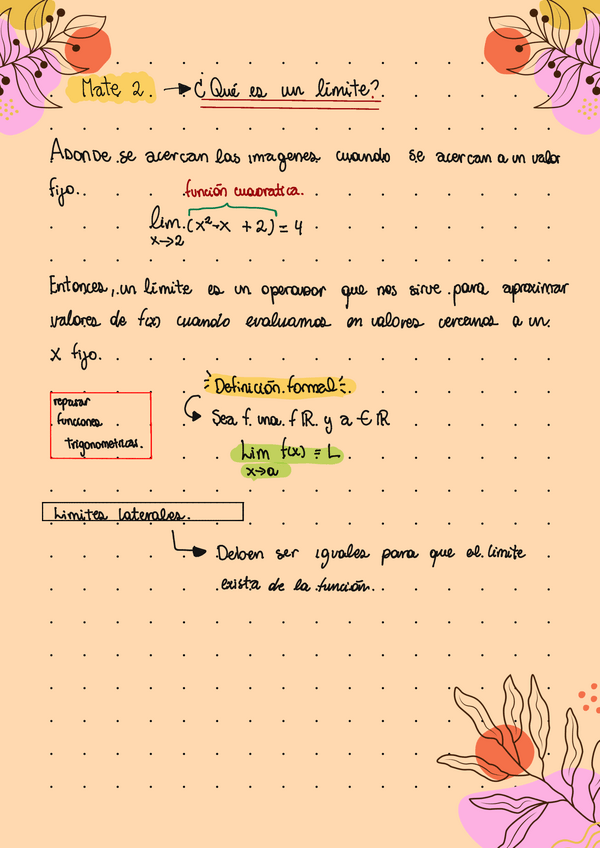 Mate 2. → ¿Qué es un límite?
Adonde se acercan las imagenes cuando se acercan a un valor
fijo.
función cuadratica.
lim (x²-x +2) = 4
x→2
Entonces, un límite es un operador que nos sirve para aproximar
valores de f(x) cuando evaluamos en valores cercanos a un
x fijo.
Definición formal
repasar
funciones
trigonometricas.
Sea f una f ℝ y a ∈ ℝ
Lim f(x) = L
x→a
Limites laterales.
Deben ser iguales para que el limite
exista de la función.